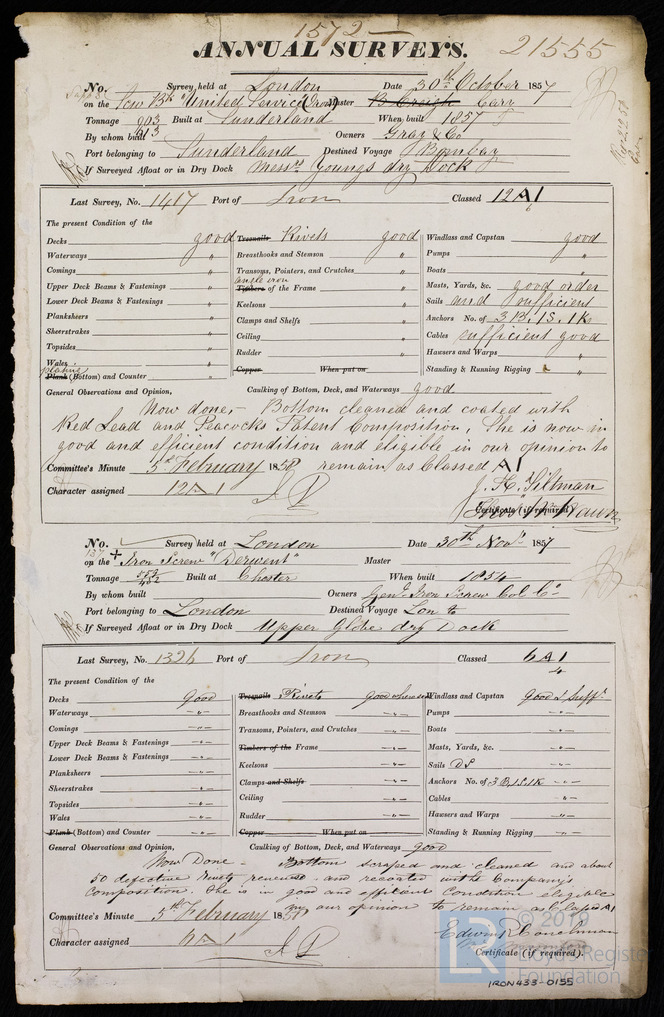 1572
ANNUAL SURVEYS. 21555
No. Survey held at London Date 30th October 1857
on the Scw Bk "United Service" (Iron) Master B Creigh Carr
Tonnage 903 Built at Sunderland When built 1857
913
By whom built Owners Gray & Co
Port belonging to Sunderland Destined Voyage Bombay
If Surveyed Afloat or in Dry Dock Messrs Youngs dry Dock
Last Survey, No. 1417 Port of Iron Classed 12 A1
6
The present Condition of the
Decks good Treenails Rivets good Windlass and Capstan good
Waterways " Breasthooks and Stemson " Pumps "
Comings " Transoms, Pointers, and Crutches " Boats "
angle iron
Upper Deck Beams & Fastenings " Timbers of the Frame " Masts, Yards, &c. good order
Lower Deck Beams & Fastenings " Keelsons " Sails and sufficient
Planksheers " Clamps and Shelfs " Anchors No. of 3B, 1S, 1K
Sheerstrakes " Ceiling " Cables sufficient good
Topsides " Rudder " Hawsers and Warps "
Wales " Copper When put on Standing & Running Rigging "
plating
Plank (Bottom) and Counter "
General Observations and Opinion, Caulking of Bottom, Deck, and Waterways good.
Now done,- Bottom cleaned and coated with
Red Lead and Peacocks Patent Composition, She is now in
good and efficient condition and eligible in our opinion to
Committee's Minute 5th February 1858 remain as Classed A1
Character assigned 12 A 1 J. H. Tillman
Certificate (if required)
No. Survey held at London Date 30th Novr 1857
137
on the + Iron Screw "Derwent" Master
Tonnage Built at Chester When built 1854
By whom built Owners Genl Iron Screw Col Co
Port belonging to London Destined Voyage Lon to
If Surveyed Afloat or in Dry Dock Upper Globe dry Dock
Last Survey, No. 1326 Port of Iron Classed 6 A 1
4
The present Condition of the
Decks Good Treenails Rivets Windlass and Capstan Good & Sufft
Waterways " Breasthooks and Stemson " Pumps "
Comings " Transoms, Pointers, and Crutches " Boats "
Upper Deck Beams & Fastenings " Timbers of the Frame " Masts, Yards, &c. "
Lower Deck Beams & Fastenings " Keelsons " Sails Do "
Planksheers " Clamps and Shelfs " Anchors No. of 3 B, 1S, 1K "
Sheerstrakes " Ceiling " Cables "
Topsides " Rudder " Hawsers and Warps "
Wales " Copper When put on Standing & Running Rigging "
Plank (Bottom) and Counter "
General Observations and Opinion, Caulking of Bottom, Deck, and Waterways good
Now Done - Bottom scraped and cleaned and about
50 defective rivets renewed and recoated with Company's
Composition. She is in good and efficient Condition eligible
in our opinion to remain as Classed A1
Committee's Minute 5th February 1858
Character assigned 6 A 1
Certificate (if required).
LR © 2019
Lloyd's Register
Foundation
IRON433-0155